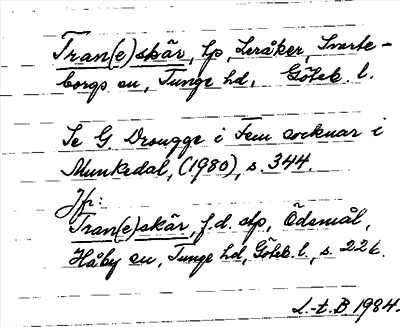 Tran(e)skär, lp, Leråker, Svarte-
borgs sn, Tunge hd, Göteb. l.
Se G. Drougge i Fem socknar i
Munkedal, (1980), s. 344.
Jfr:
Tran(e)skär, f.d. stp, Ödsmål,
Håby sn, Tunge hd, Göteb. l., s. 226.
L.-t. B 1984.